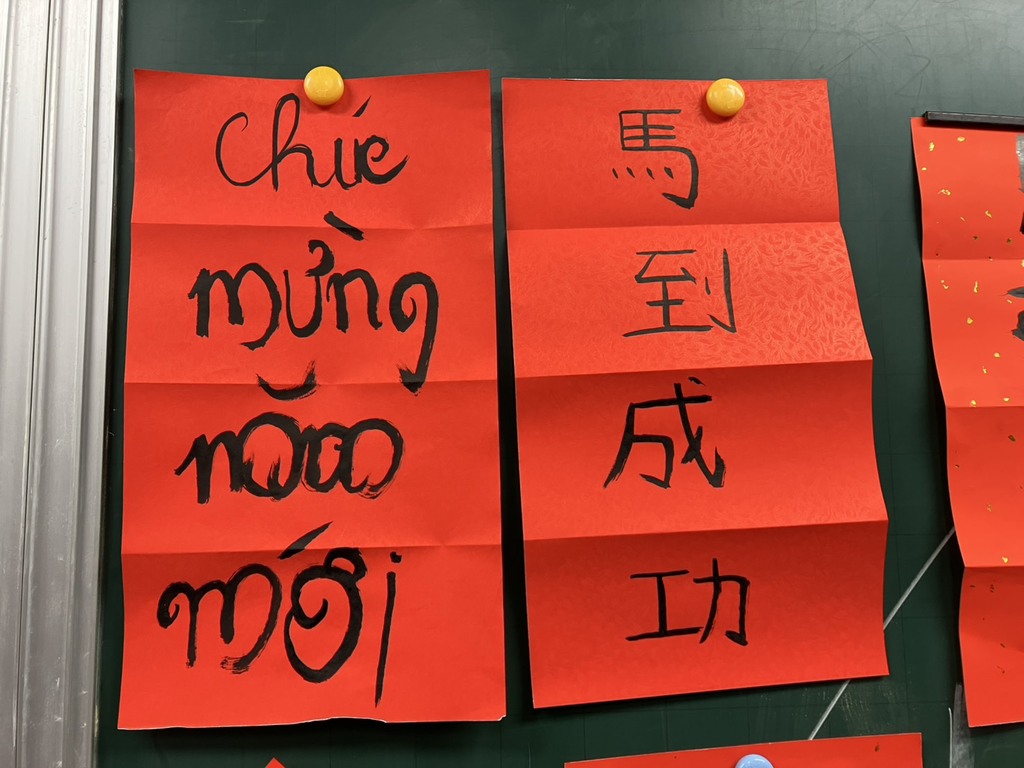 Chúc
mừng
năm
mới
馬
到
成
功